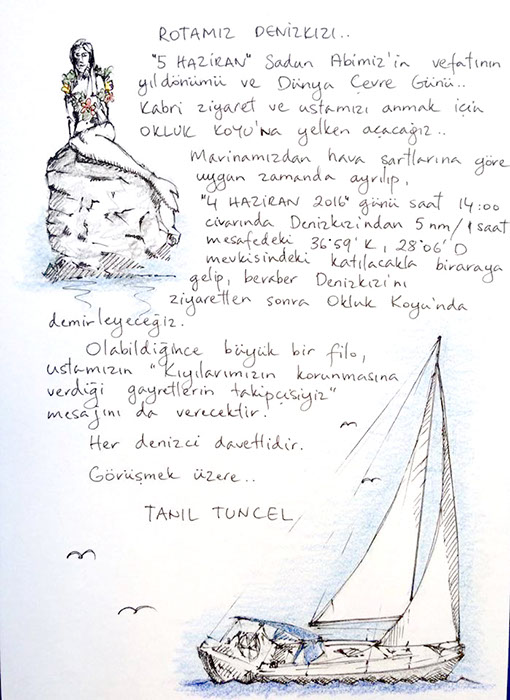 ROTAMIZ DENİZKIZI..
"5 HAZİRAN" Sadun Abimiz'in vefatının
yıldönümü ve Dünya Çevre Günü..
Kabri ziyaret ve ustamızı anmak için
OKLUK KOYU'NA yelken açacağız..
Marinamızdan hava şartlarına göre
uygun zamanda ayrılıp,
"4 HAZİRAN 2016" günü saat 14:00
civarında Denizkızı'ndan 5 nm/1 saat
mesafedeki 36°59' K, 28°06' D
mevkisindeki katılacakla biraraya
gelip, beraber Denizkızı'nı
ziyaretten sonra Okluk Koyu'nda
demirleyeceğiz.
Olabildiğince büyük bir filo,
ustamızın "Kıyılarımızın korunmasına
verdiği gayretlerin takipçisiyiz"
mesajını da verecektir.
Her denizci davetlidir.
Görüşmek üzere..
TANIL TUNCEL